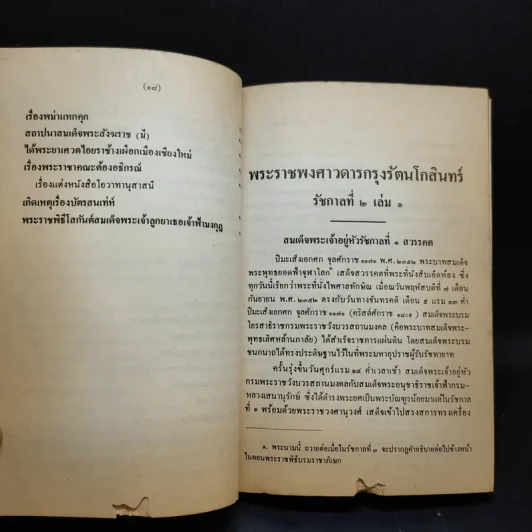 (๑๘)
เรื่องพม่าแหกคุก
สถาปนาสมเด็จพระสังฆราช (มี)
ได้พระยาเศวตไอยราช้างเผือกเมืองเชียงใหม่
เรื่องพระราชาคณะต้องอธิกรณ์
เรื่องแต่งหนังสือโอวาทานุสาสนี
เกิดเหตุเรื่องบัตรสนเท่ห์
พระราชพิธีโสกันต์สมเด็จพระเจ้าลูกยาเธอเจ้าฟ้ามงกุฎ
พระราชพงศาวดารกรุงรัตนโกสินทร์
รัชกาลที่ ๒ เล่ม ๑
สมเด็จพระเจ้าอยู่หัวรัชกาลที่ ๑ สวรรคต
ปีมะเส็งเอกศก จุลศักราช ๑๑๗๑ พ.ศ. ๒๓๕๒ พระบาทสมเด็จ
พระพุทธยอดฟ้าจุฬาโลก๑ เสด็จสวรรคตที่พระที่นั่งสิบเอ็ดห้อง ซึ่ง
ทุกวันนี้เรียกว่าพระที่นั่งไพศาลทักษิณ เมื่อณวันพฤหัสบดีที่ ๗ เดือน
กันยายน พ.ศ. ๒๓๕๒ ตรงกับวันทางจันทรคติ เดือน ๙ แรม ๑๓ ค่ำ
ปีมะเส็งเอกศก จุลศักราช ๑๑๗๑ (คริสต์ศักราช ๑๘๐๙) สมเด็จพระบรม
โอรสาธิราชกรมพระราชวังบวรสถานมงคล (คือพระบาทสมเด็จพระ-
พุทธเลิศหล้านภาลัย) ได้สำเร็จราชการแผ่นดิน โดยสมเด็จพระบรม
ชนกนาถได้ทรงประดิษฐานไว้ในที่พระมหาอุปราชผู้รับรัชทายาท
ครั้นรุ่งขึ้นวันศุกร์แรม ๑๔ ค่ำเวลาเช้า สมเด็จพระเจ้าอยู่หัว
กรมพระราชวังบวรสถานมงคลกับสมเด็จพระอนุชาธิราชเจ้าฟ้ากรม-
หลวงเสนานุรักษ์ ซึ่งได้ดำรงพระยศเป็นพระบัณฑูรน้อยมาแต่ในรัชกาล
ที่ ๑ พร้อมด้วยพระราชวงศานุวงศ์ เสด็จเข้าไปสรงสการทรงเครื่อง
๑. พระนามนี้ ถวายต่อเมื่อในรัชกาลที่ ๓ จะปรากฏคำอธิบายต่อไปข้างหน้า
ในตอนพระราชพิธีบรมราชาภิเษก